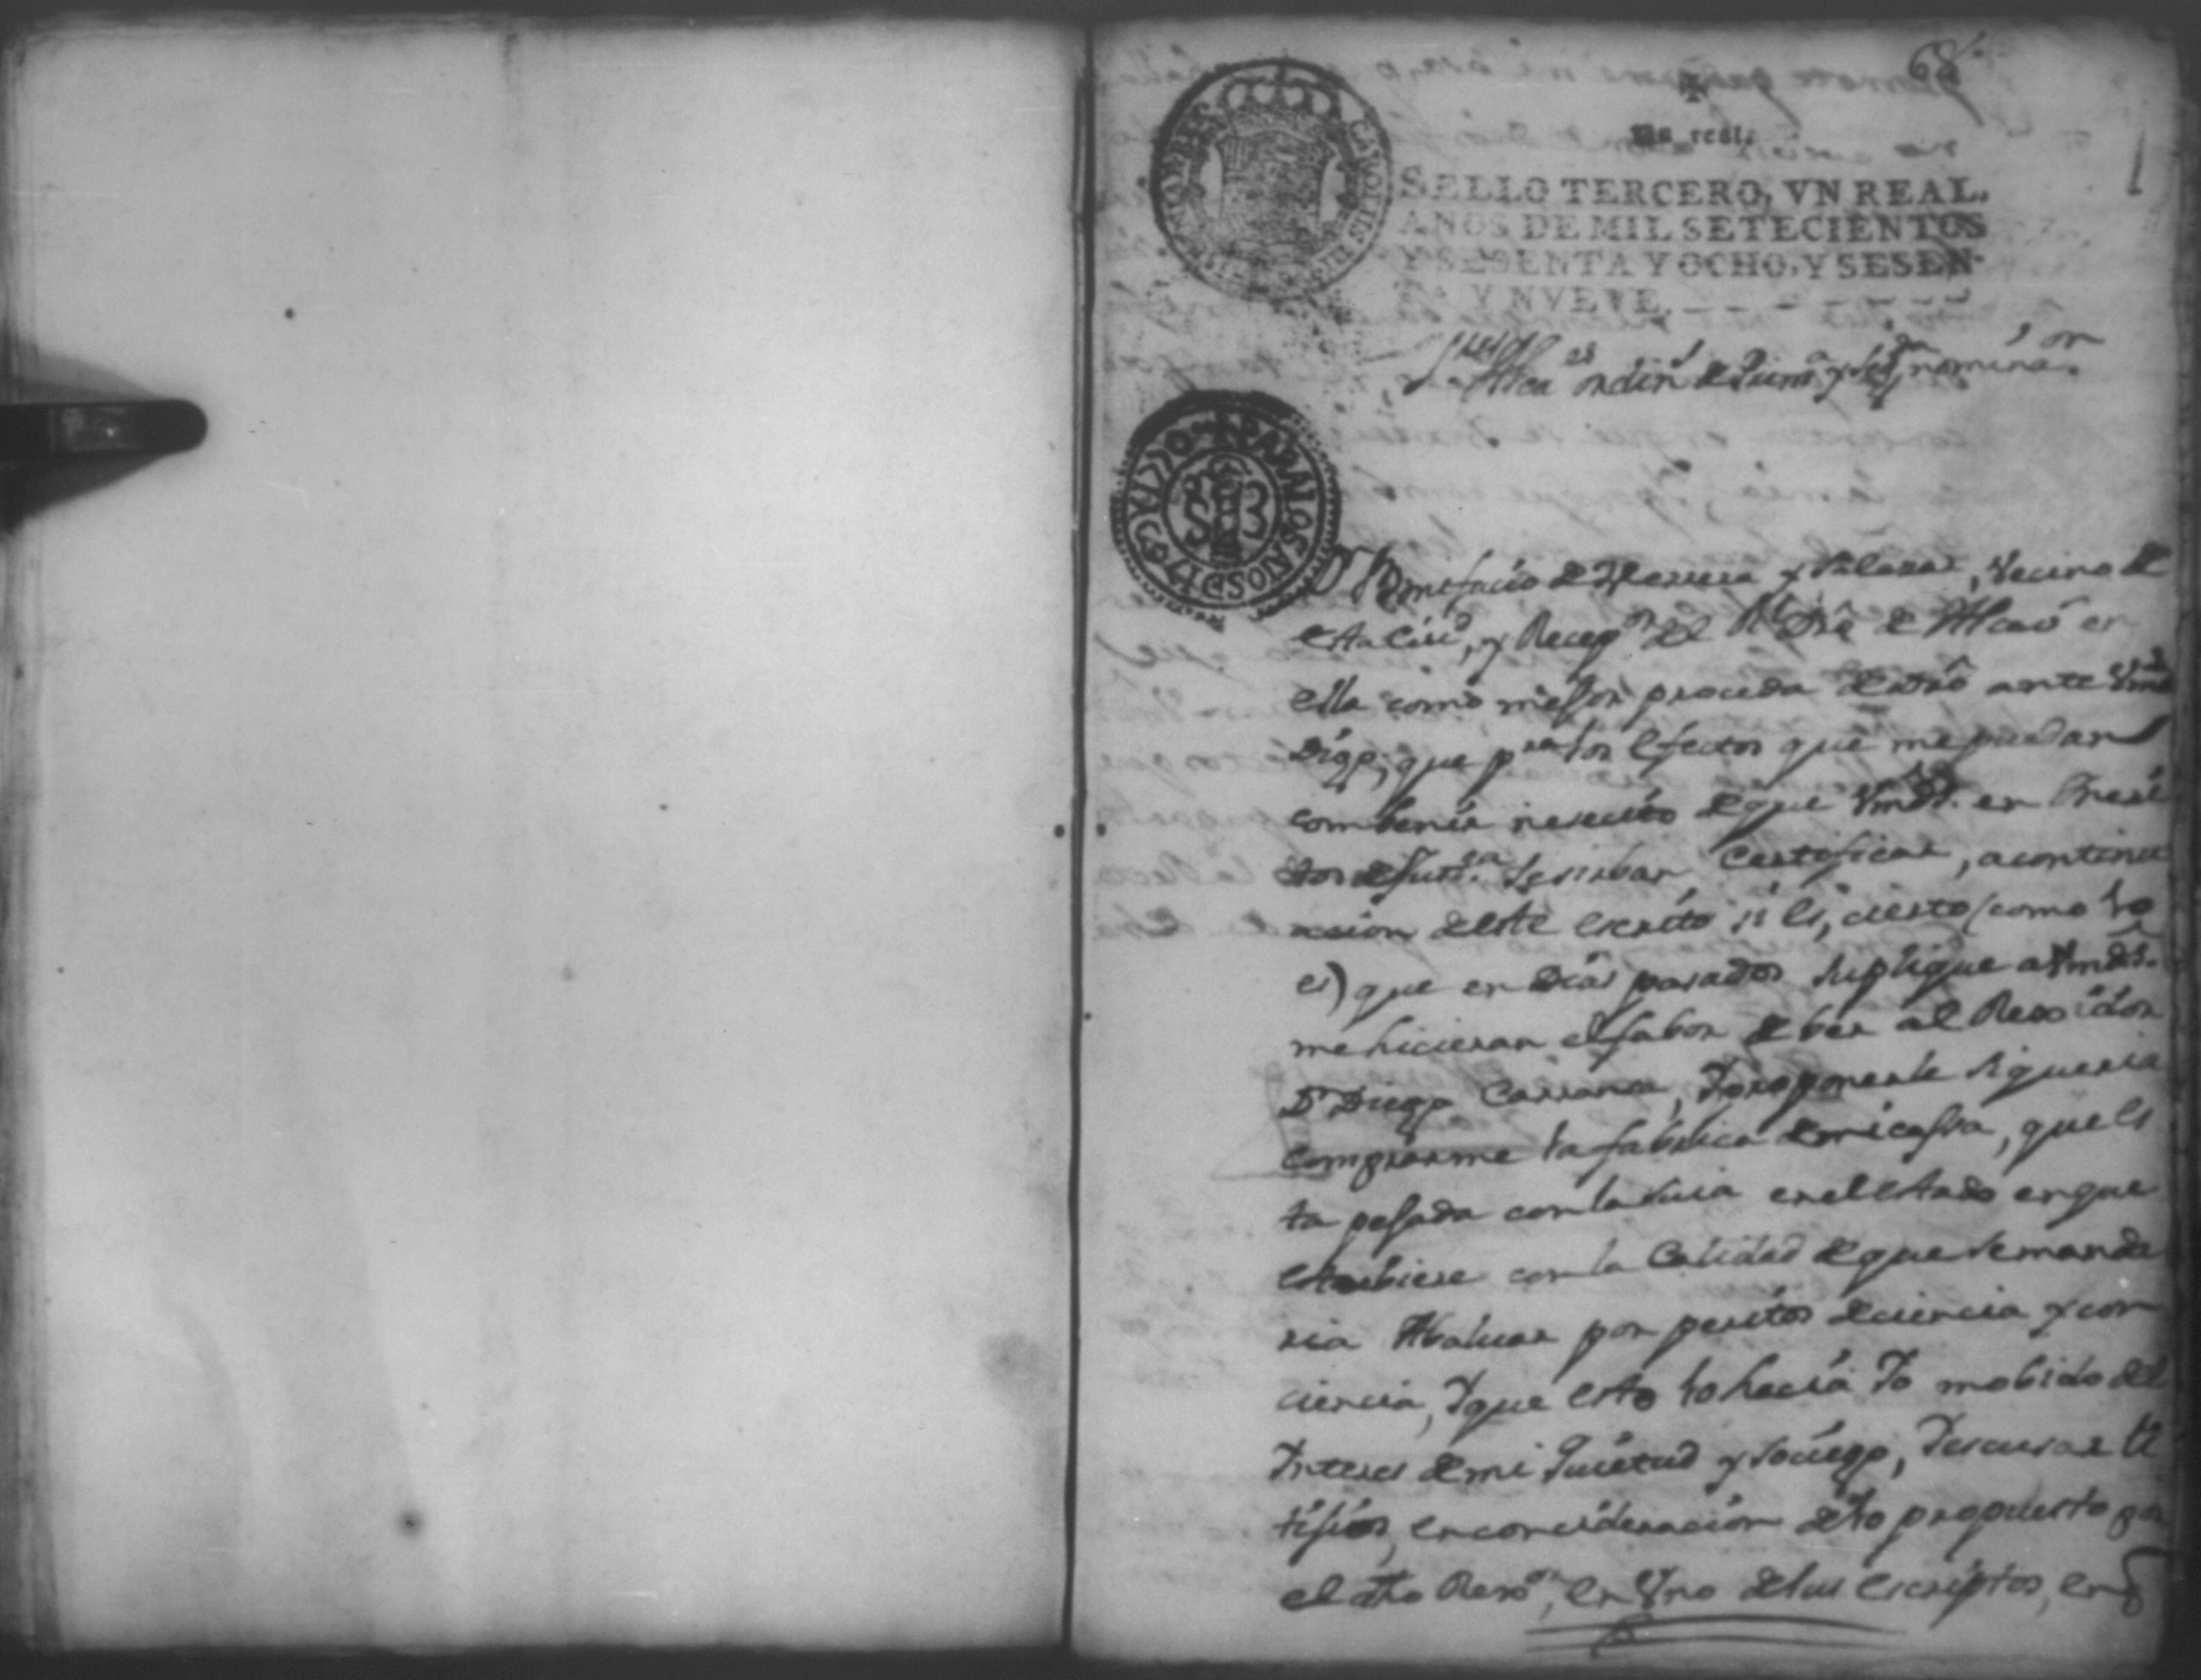 68
1
Un real.
SELLO TERCERO, VN REAL,
AÑOS DE MIL SETECIENTOS
Y SESENTA Y OCHO, Y SESEN-
TA Y NVEVE.
CAROLUS III
PARA LOS ANOS D 1769 Y 1770
S.res Alca.es ordin.s de Prim.a y Seg.da nomina.on
D.n Bonifacio de Herrera y Salazar, Vecino de
esta Ciud, y Recep.or del R.l Dro de Alcav.a en
ella como mejor proceda de dro ante Vmds
Digo, que p.ra los efectos que me puedan
combenir nesecito de que Vmds. en
de Just.a se sirban Certificar, a continu
acion de este escrito si es, cierto (como lo
es) que en Dias pasados suplique a Vmds.
me hicieran el fabor de ber al Rexidor
D.n Diego Carranza, y proponerle si queria
comprarme la fabrica de mi cassa, que es
ta pegada con la suia en el estado en que
estubiese con la Calidad de que se manda
ria Abaluar por peritos de ciencia y con
ciencia, y que esto lo hacia Yo mobido del
Interes de mi Quietud y sociego, y escusar li
tisios, en concideracion de lo propuesto por
el dho Rexo.or, en Vno de sus escriptos, en q